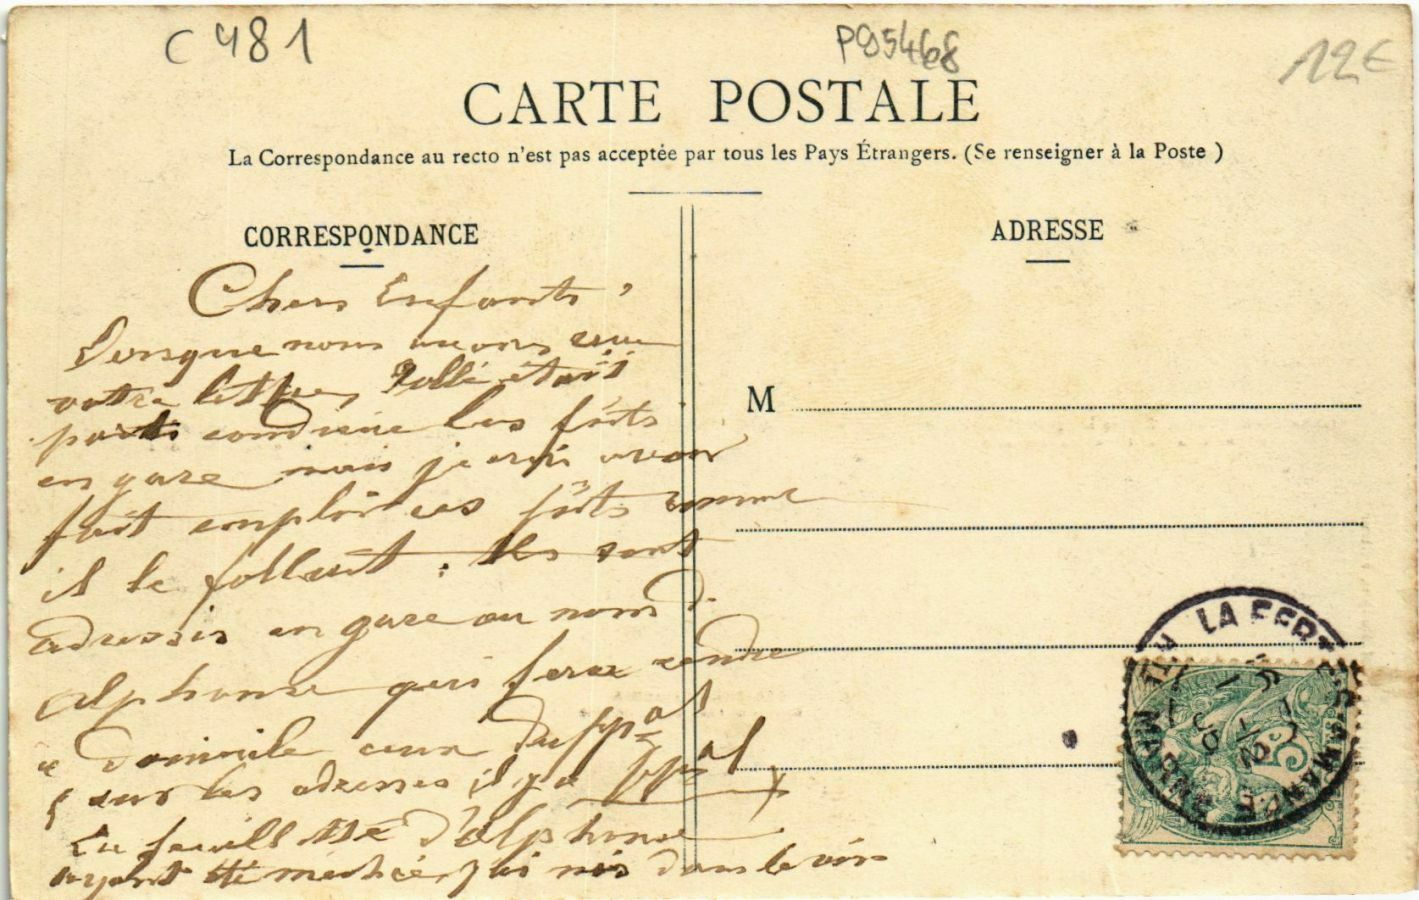 C 481
P95468
12€
CARTE POSTALE
La Correspondance au recto n'est pas acceptée par tous les Pays Étrangers. (Se renseigner à la Poste )
CORRESPONDANCE
ADRESSE
Chers Enfants,
Lorsque nous avons
votre lettre, était
parti conduire les fûts
en gare mais je crois avoir
fait emploi ces fûts comme
il le fallait. Ils sont
adressés en gare au nom d'
Alphonse qui fera rendre
a domicile ceux du
sur les adresses il y a
La feuille d'Alphonse
ayant été j'ai mis dans le vin
M
LA FERTÉ-S-AMANCE
HTE MARNE
5